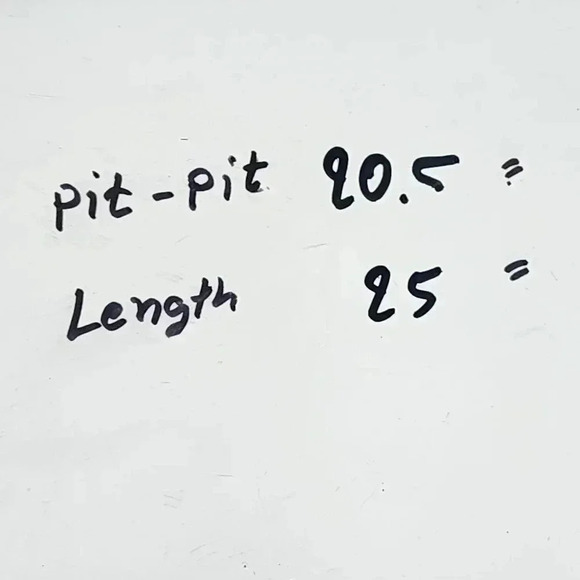 Pit-Pit 20.5"
Length 25"